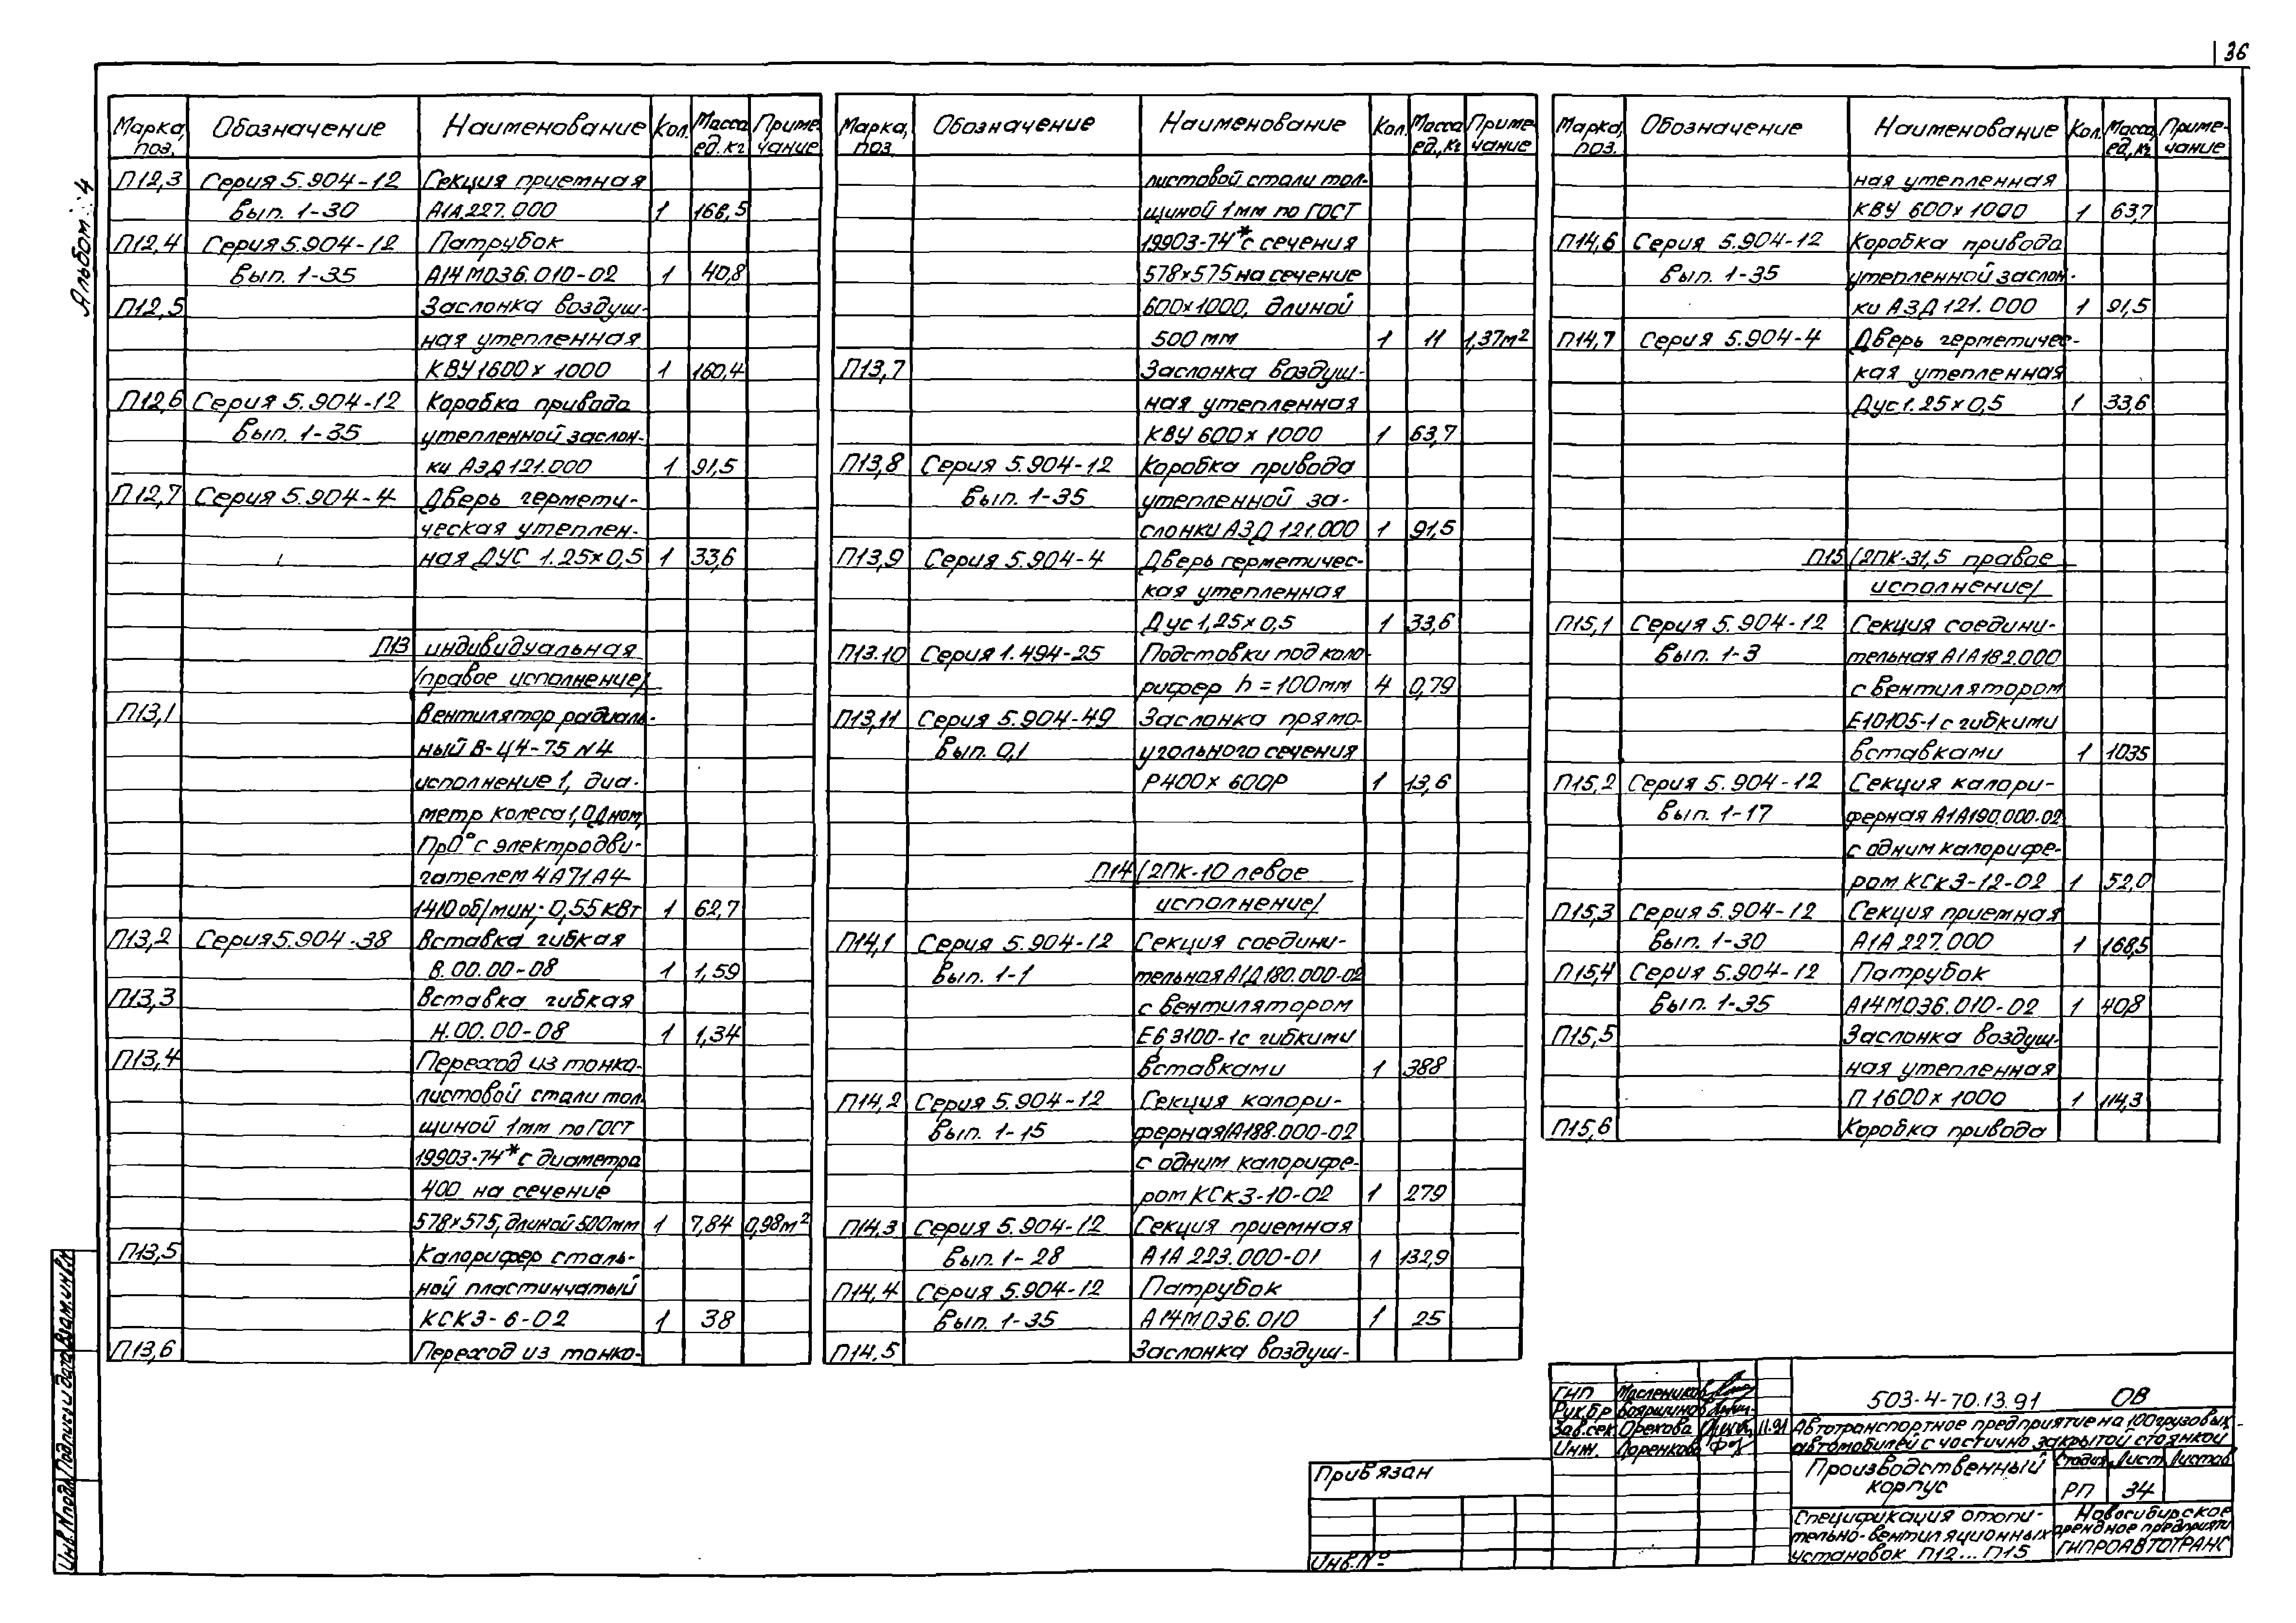 36
Альбом 4
Марка, поз. Обозначение Наименование Кол. Масса ед. кг Приме-чание
П12,3 Серия 5.904-12 Секция приемная
Вып. 1-30 А1А 227.000 1 168,5
П12,4 Серия 5.904-12 Патрубок
Вып. 1-35 А14М036.010-02 1 40,8
П12,5 Заслонка воздуш-
ная утепленная
КВУ 1600х1000 1 160,4
П12,6 Серия 5.904-12 Коробка привода
Вып. 1-35 утепленной заслон-
ки АЗД 121.000 1 91,5
П12,7 Серия 5.904-4 Дверь гермети-
ческая утеплен-
ная ДУС 1.25х0,5 1 33,6
П13 индивидуальная
/правое исполнение/
П13,1 Вентилятор радиаль-
ный В-Ц4-75 N4
исполнение 1, диа-
метр колеса 1,0 Дном,
Пр0° с электродви-
гателем 4А71А4
1410 об/мин; 0,55 кВт 1 62,7
П13,2 Серия 5.904-38 Вставка гибкая
В.00.00-08 1 1,59
П13,3 Вставка гибкая
Н.00.00-08 1 1,34
П13,4 Переход из тонко-
листовой стали тол-
щиной 1мм по ГОСТ
19903-74* с диаметра
400 на сечение
578х575, длиной 500мм 1 7,84 0,98м²
П13,5 Калорифер сталь-
ной пластинчатый
КСК3-6-02 1 38
П13,6 Переход из тонко-
Марка, поз. Обозначение Наименование Кол. Масса ед., кг Приме-чание
листовой стали тол-
щиной 1мм по ГОСТ
19903-74* с сечения
578х575 на сечение
600х1000, длиной
500 мм 1 11 1,37м²
П13,7 Заслонка воздуш-
ная утепленная
КВУ 600х1000 1 63,7
П13,8 Серия 5.904-12 Коробка привода
Вып. 1-35 утепленной за-
слонки АЗД 121.000 1 91,5
П13,9 Серия 5.904-4 Дверь герметичес-
кая утепленная
Дус 1,25х0,5 1 33,6
П13.10 Серия 1.494-25 Подставки под кало-
рифер h=100мм 4 0,79
П13,11 Серия 5.904-49 Заслонка прямо-
Вып. 0,1 угольного сечения
Р400х600Р 1 13,6
П14 /2ПК-10 левое
исполнение/
П14,1 Серия 5.904-12 Секция соедини-
Вып. 1-1 тельная А1Д 180.000-02
с вентилятором
Е6,3100-1с гибкими
вставками 1 388
П14,2 Серия 5.904-12 Секция калори-
Вып. 1-15 ферная1А188.000-02
с одним калорифе-
ром КСк3-10-02 1 279
П14.3 Серия 5.904-12 Секция приемная
Вып. 1-28 А1А 223.000-01 1 132,9
П14.4 Серия 5.904-12 Патрубок
Вып. 1-35 А14М036.010 1 25
П14.5 Заслонка воздуш-
Марка, поз. Обозначение Наименование Кол. Масса ед, кг Приме-чание
ная утепленная
КВУ 600х1000 1 63,7
П14,6 Серия 5.904-12 Коробка привода
Вып. 1-35 утепленной заслон-
ки АЗД 121.000 1 91,5
П14,7 Серия 5.904-4 Дверь герметичес-
кая утепленная
Дус 1.25х0,5 1 33,6
П15 /2ПК-31,5 правое
исполнение/
П15,1 Серия 5.904-12 Секция соедини-
Вып. 1-3 тельная А1А182.000
с вентилятором
Е10105-1 с гибкими
вставками 1 1035
П15,2 Серия 5.904-12 Секция калори-
Вып. 1-17 ферная А1А190.000-02
с одним калорифе-
ром КСк3-12-02 1 52,0
П15,3 Серия 5.904-12 Секция приемная
Вып. 1-30 А1А 227.000 1 168,5
П15,4 Серия 5.904-12 Патрубок
Вып. 1-35 А14М036.010-02 1 40,8
П15,5 Заслонка воздуш-
ная утепленная
П 1600х1000 1 114,3
П15,6 Коробка привода
Инв.N подл. Подпись и дата Взам.инв.N
ГИП Маслеников
Рук.бр Бояршинов
Зав.сек. Орехова 11.91
Инж. Ларенкова
503-4-70.13.91 ОВ
Автотранспортное предприятие на 100 грузовых
автомобилей с частично закрытой стоянкой
Производственный
корпус
Стадия Лист Листов
РП 34
Спецификация отопи-
тельно-вентиляционных
установок П12...П15
Новосибирское
арендное предприяти
ГИПРОАВТОТРАНС
Привязан
Инв.№